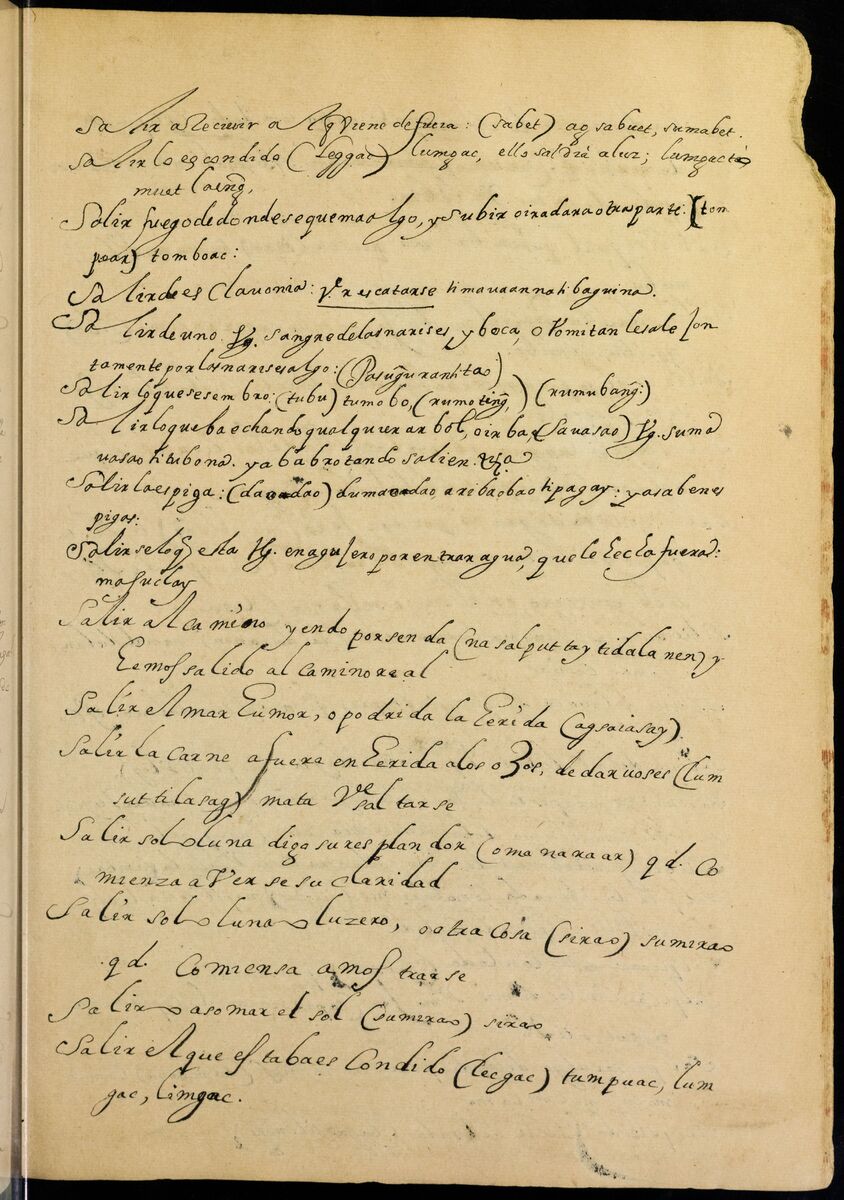 Salir a Reciuir al q̃ viene de fuera: (sabet) ag sabuet, sumabet.
salir lo escondido (leggac) lumgac, ello saldrá a luz; lumgacto
muet laeng,
Salir fuego de donde se quema algo, y subir o ir a dar a otra parte: (tom
poar) tomboac:
Salir de esclauonia: ve. rescatarse timauaannatibaguina.
Salir de uno Vg. sangre de las narises, y boca, o vomitan le sale Jon
tamente por los narises algo: (Pasug̃urantitao)
Salir lo que se sembro: (tubu) tumobo, (rumoteng̃,) (rumubang̃:)
Salir lo que ba echando qual quier arbol, o irba, (sauasao) Vg. suma
uasao titubona. ya ba brotando salien.
Salir la espiga: (daoadao) dumaoadao aribaobao tipagay: ya sab en es
pigas:
Salirse lo q̃ esta Vg. en agujero por entrar agua, que le hecha fuera:
masuclay
Salir al camino yendo por senda (nasalputtay tidalanen) y
hemos salido al camino real
Salir el mar humor, o podrida la herida (agsaiasay).
Salir la carne afuera en herida a los ojos, de dar uoses (lum
suttilasag) mata Ve saltarse
Salir sol o luna digo su resplandor (omanaraar) q d. Co
mienza a Verse su claridad
Salir sol o luna o luzero, o otra cosa (sirao) sumirao
q d. Comiensa amostrarse
Salir o asomar el sol (sumirao) sirao
Salir el que estaba escondido (lecgac) tumpuac, lum
gac, limgac.